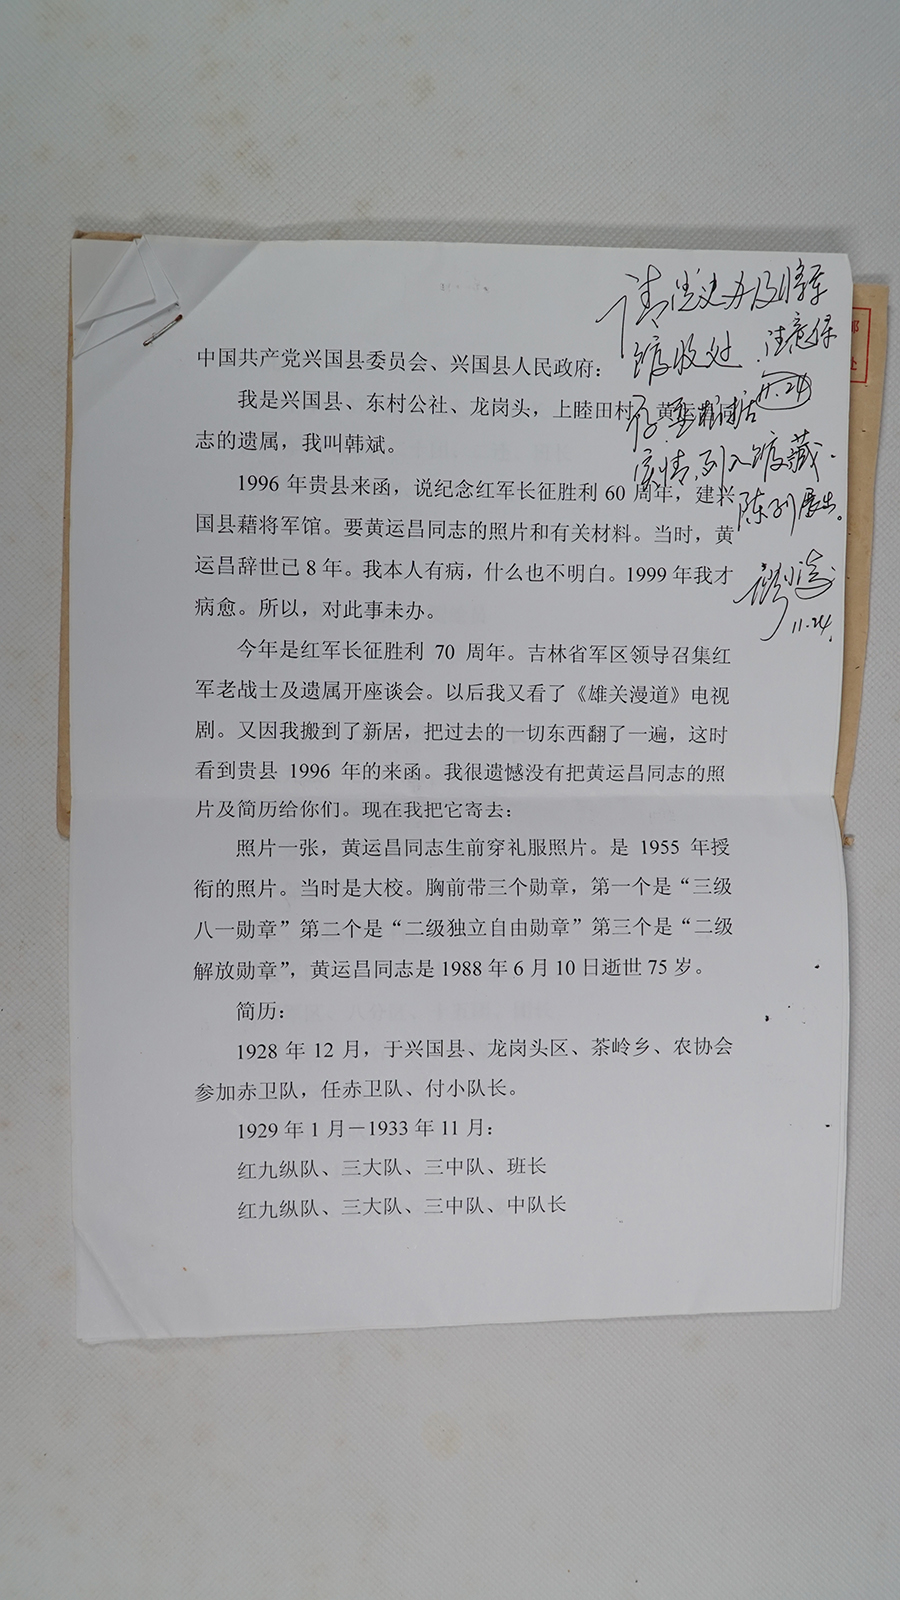 请党史办及将军
馆收处.注意保
存.要根据
实情,列入馆藏.
陈列展出。
11.24
11.24.
中国共产党兴国县委员会、兴国县人民政府:
我是兴国县、东村公社、龙岗头,上睦田村,黄运昌同
志的遗属,我叫韩斌。
1996年贵县来函,说纪念红军长征胜利60周年,建兴
国县藉将军馆。要黄运昌同志的照片和有关材料。当时,黄
运昌辞世已8年。我本人有病,什么也不明白。1999年我才
病愈。所以,对此事未办。
今年是红军长征胜利 70 周年。吉林省军区领导召集红
军老战士及遗属开座谈会。以后我又看了《雄关漫道》电视
剧。又因我搬到了新居,把过去的一切东西翻了一遍,这时
看到贵县 1996 年的来函。我很遗憾没有把黄运昌同志的照
片及简历给你们。现在我把它寄去:
照片一张,黄运昌同志生前穿礼服照片。是 1955 年授
衔的照片。当时是大校。胸前带三个勋章,第一个是“三级
八一勋章”第二个是“二级独立自由勋章”第三个是“二级
解放勋章”,黄运昌同志是1988年6月10日逝世75岁。
简历:
1928 年 12 月,于兴国县、龙岗头区、茶岭乡、农协会
参加赤卫队,任赤卫队、付小队长。
1929年1月－1933年11月:
红九纵队、三大队、三中队、班长
红九纵队、三大队、三中队、中队长